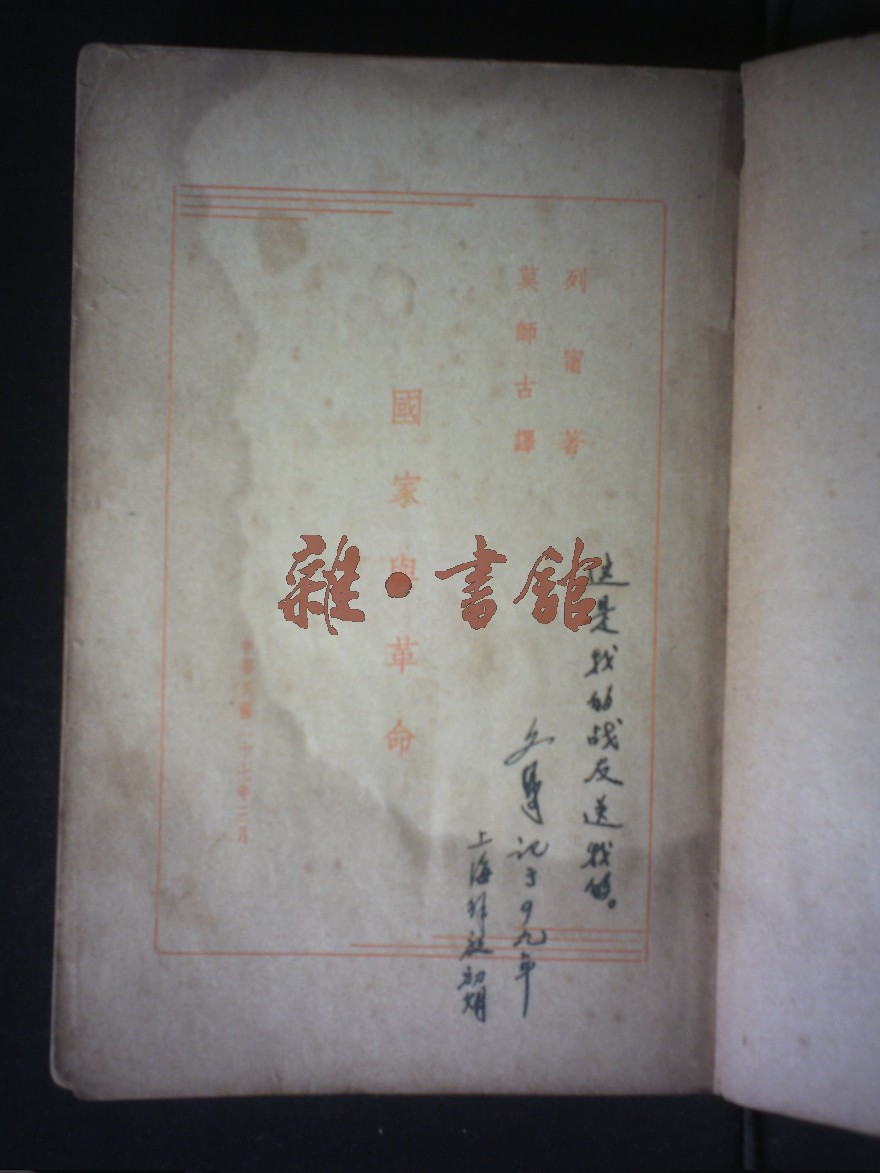 列甯著
莫師古譯
國家與革命
中華民國二十七年三月
雜·書館
这是我的战友送我的。
记于四九年
上海解放初期